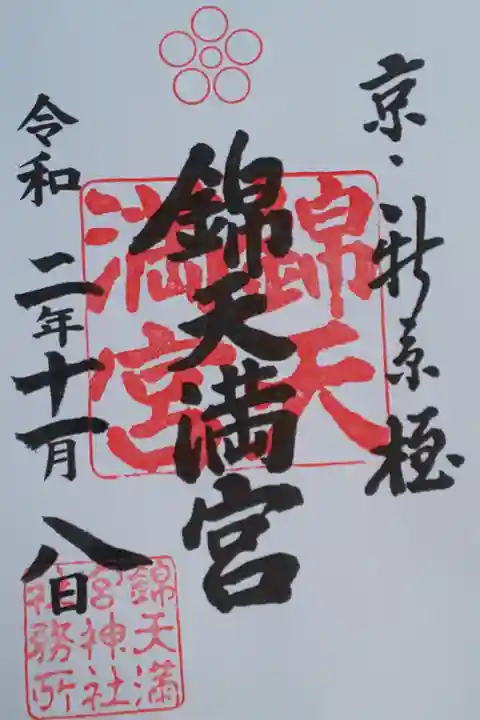 京・新京極
錦天満宮
錦天
満宮
令和二年十一月八日
錦天満
宮神社
社務所